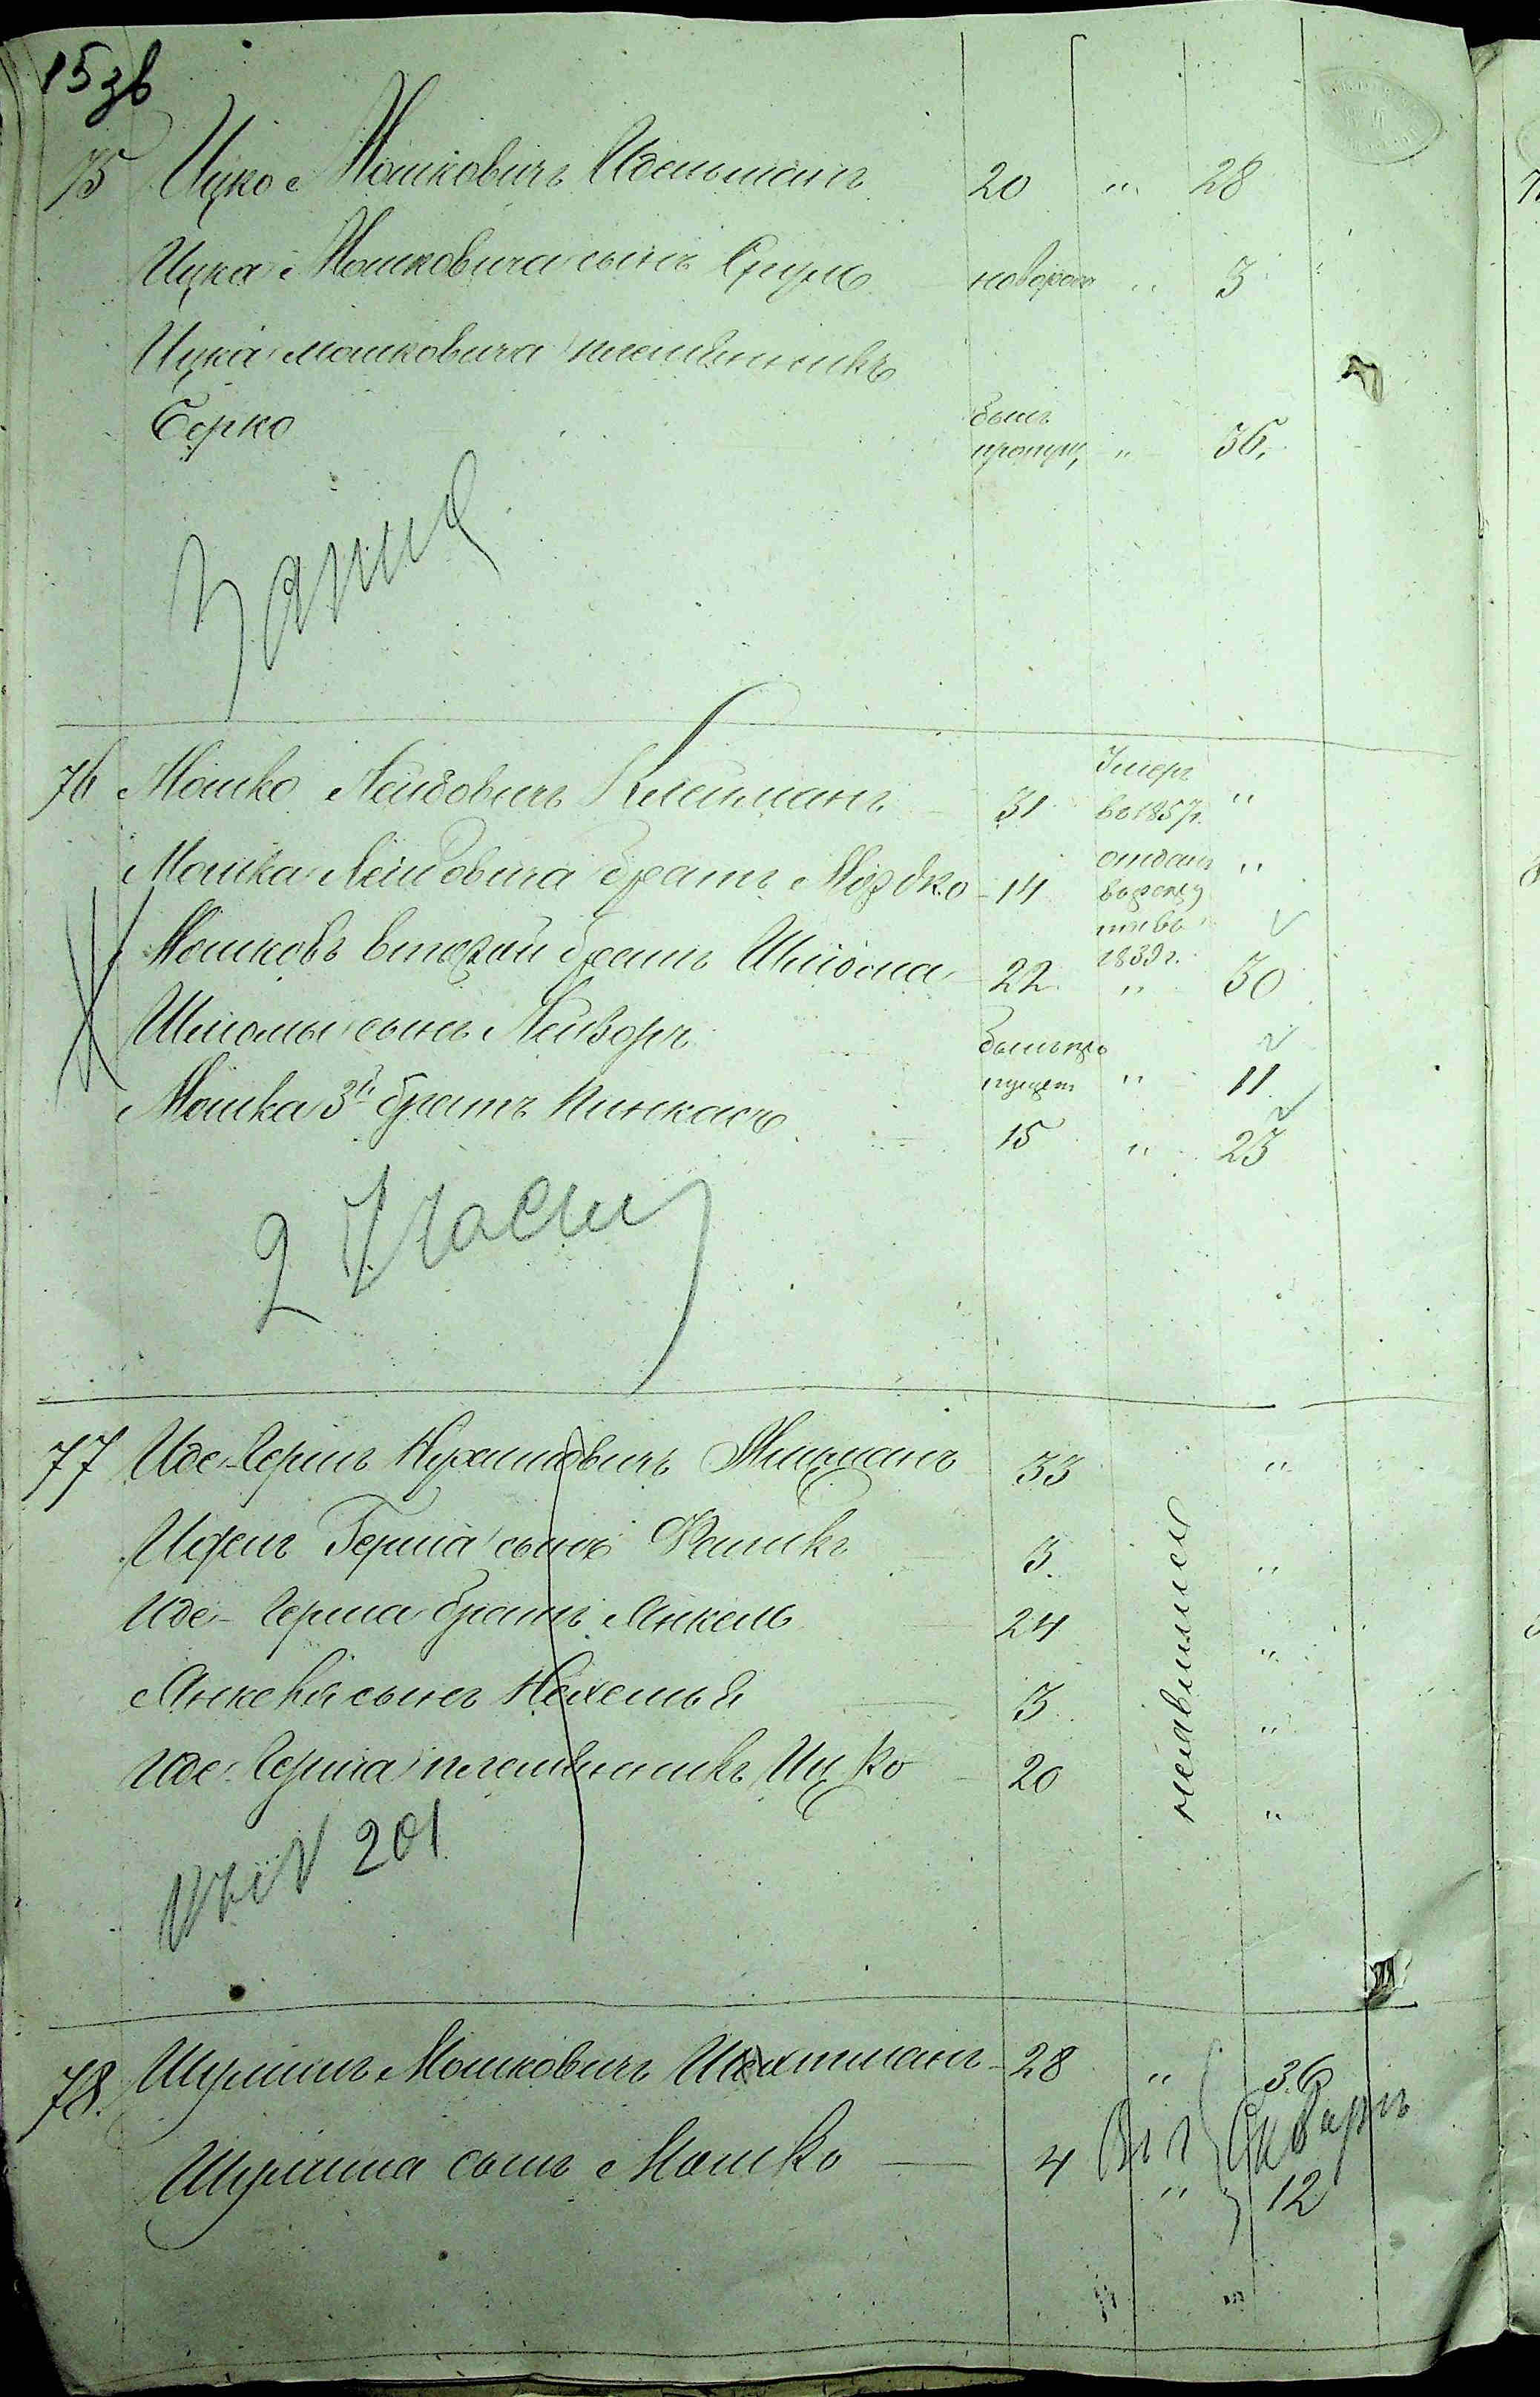 15зв
75 Ицко Мошковичъ Идельманъ 20 " 28
Ицка Мошковича сынъ Сруль новорож " 3
Ицка Мошковича племянникъ
Берко былъ пропущ " 36
76 Мошко Лейбовичъ Клейманъ 31 Умеръ въ 1857г. "
Мошка Лейбовича братъ Мордко 14 отданъ въ рекруты въ 1839 г. "
Мошковъ второй братъ Шлиома 22 " 30
Шліомы сынъ Лейзоръ былъ пропущен " 11
Мошка 3й братъ Пинкасъ 15 " 23
2
77 Иде-Гершъ Нухимовичъ 33 "
Идель Герша сынъ 3 "
Иде-Герша братъ Янкель 24 "
Янкеля сынъ 3 "
Иде-Герша племянникъ Ицко 20 "
неявились
N 201
78. Шулимъ Мошковичъ 28 " 36
Шулима сынъ Мошко 4 " 12